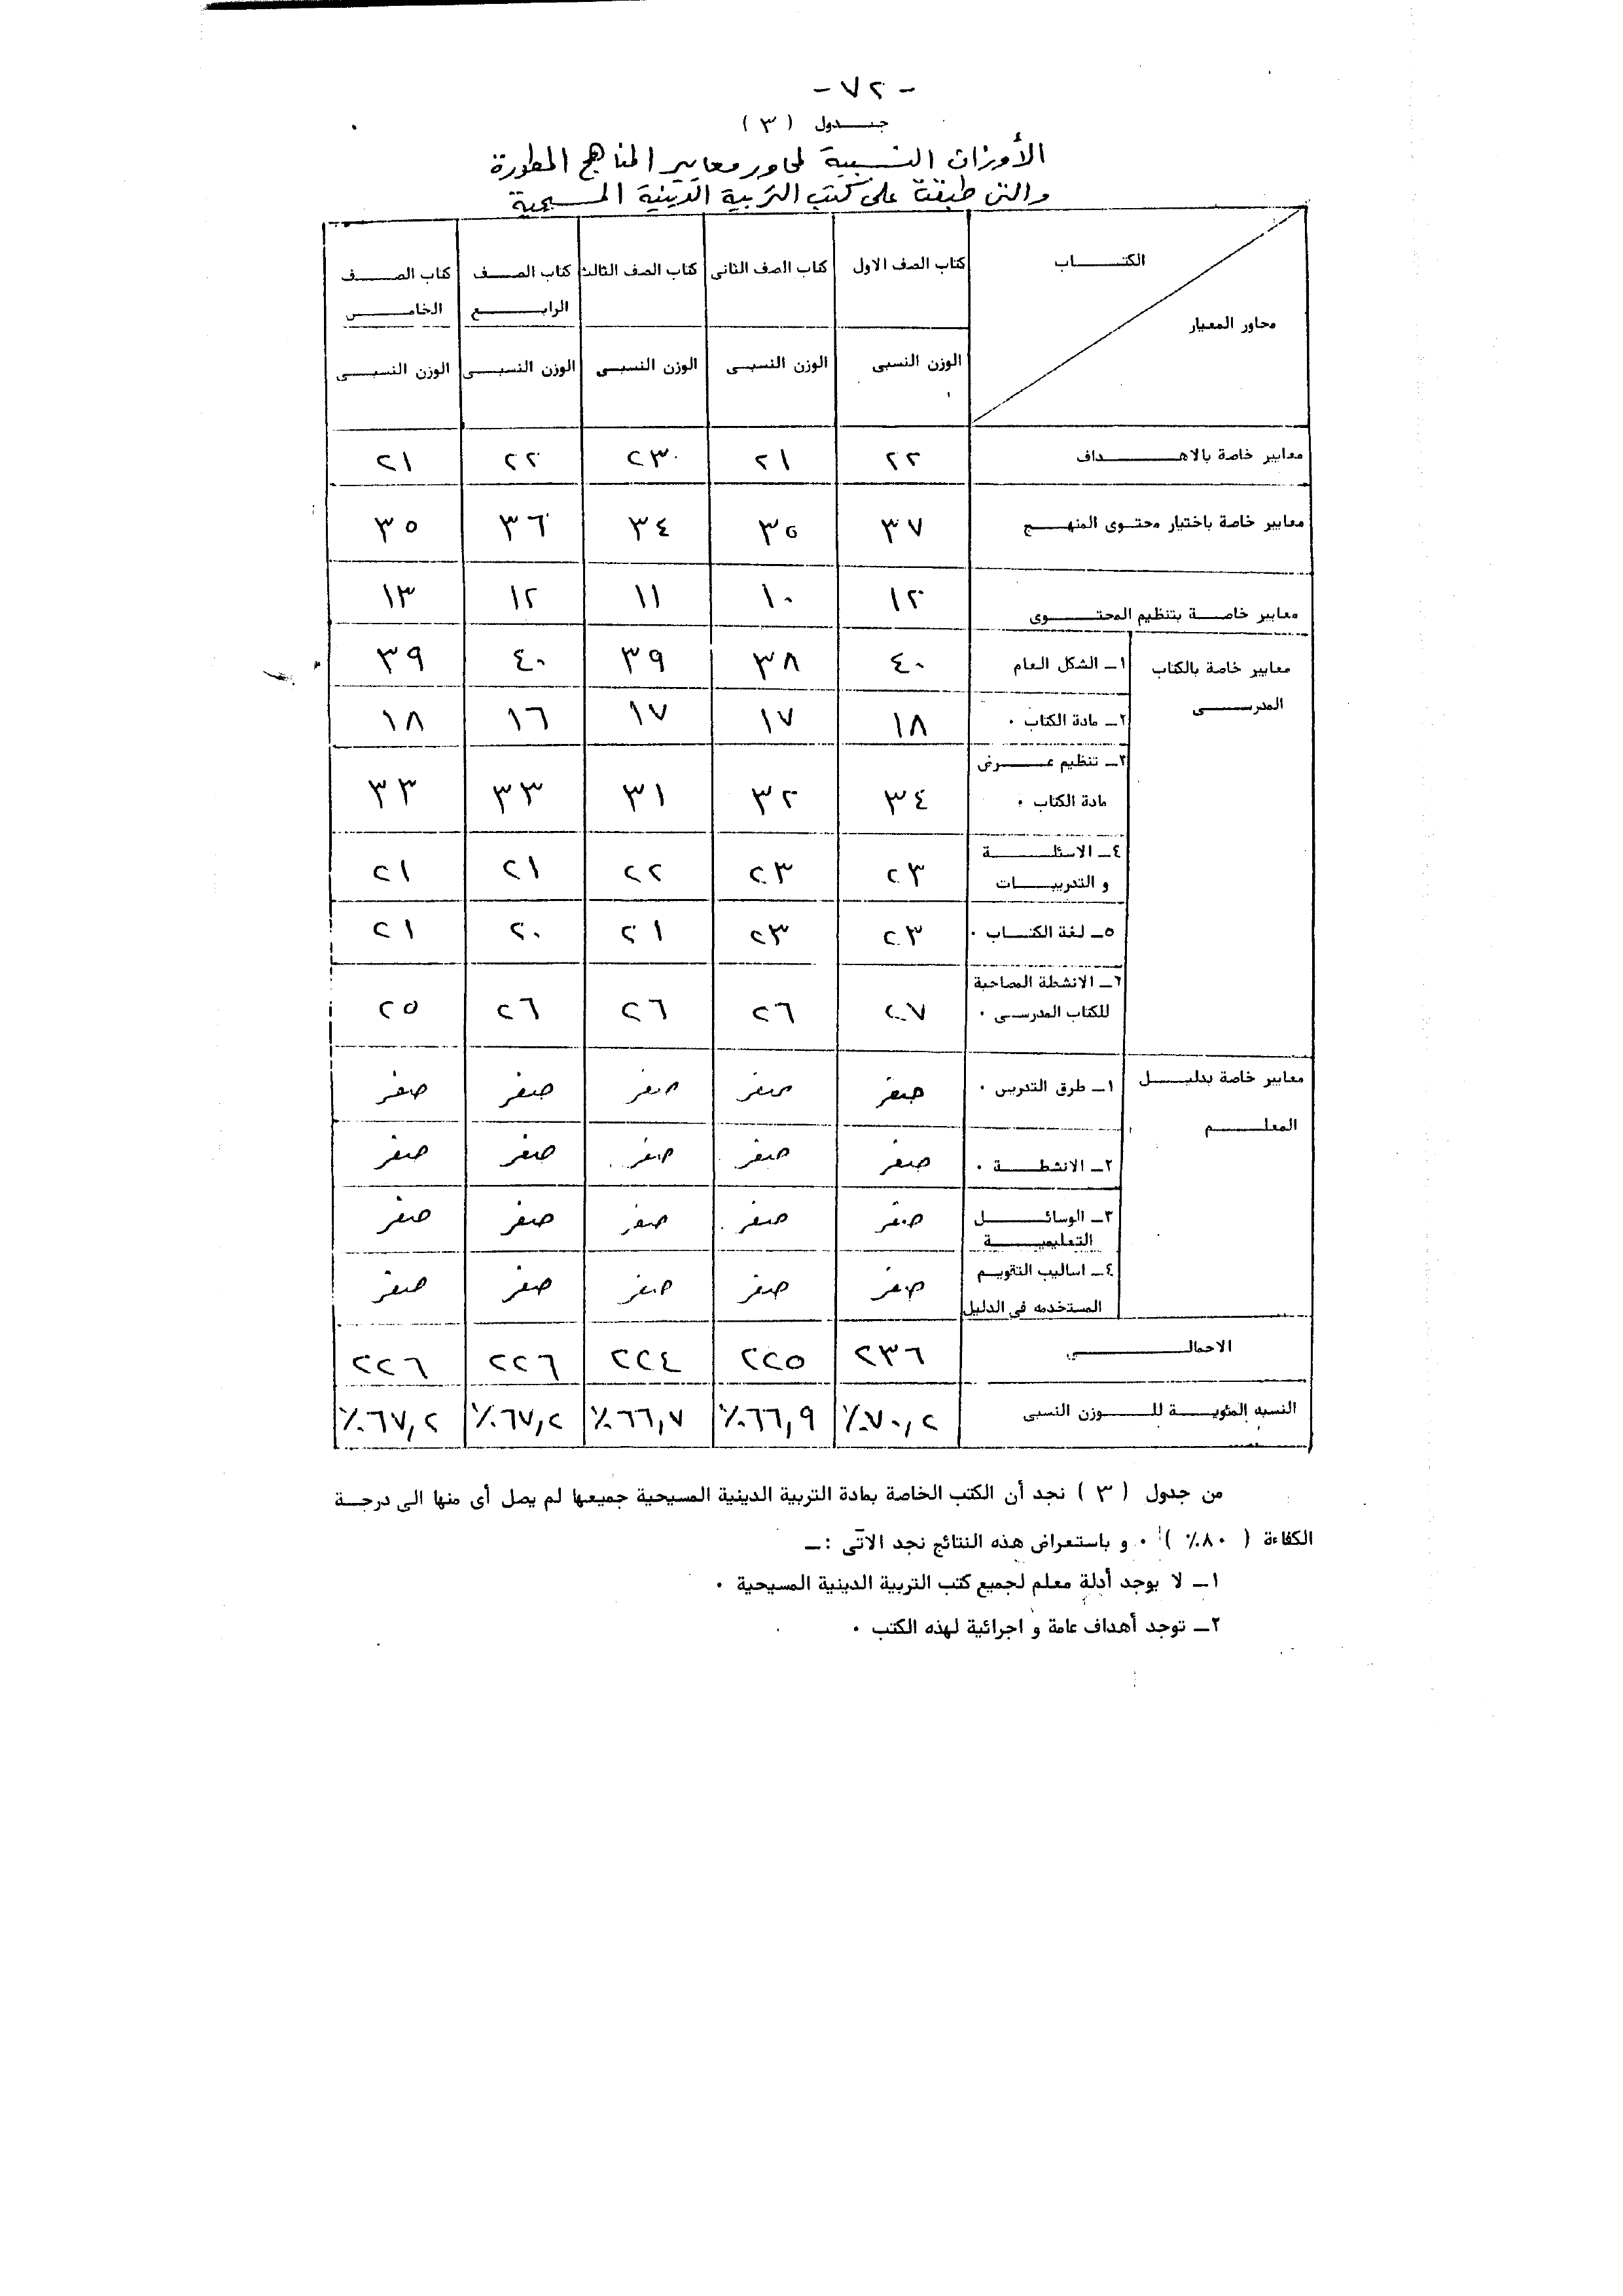 - ٧٢ -
جدول ( ٣ )
الأوزان النسبية لمحاور معايير المناهج المطورة
والتى طبقت على كتب التربية الدينية المسيحية
الكتاب
محاور المعيار
كتاب الصف الاول
كتاب الصف الثانى
كتاب الصف الثالث
كتاب الصف الرابع
كتاب الصف الخامس
الوزن النسبى
الوزن النسبى
الوزن النسبى
الوزن النسبى
الوزن النسبى
معايير خاصة بالاهداف ٢٢ ٢١ ٢٣ ٢٢ ٢١
معايير خاصة باختيار محتوى المنهج ٣٧ ٣٥ ٣٤ ٣٦ ٣٥
معايير خاصة بتنظيم المحتوى ١٢ ١٠ ١١ ١٢ ١٣
معايير خاصة بالكتاب
المدرسى
١ـ الشكل العام ٤٠ ٣٨ ٣٩ ٤٠ ٣٩
٢ـ مادة الكتاب ٠ ١٨ ١٧ ١٧ ١٦ ١٨
٣ـ تنظيم عرض
مادة الكتاب ٠ ٣٤ ٣٢ ٣١ ٣٣ ٣٣
٤ـ الاسئلة
و التدريبات ٢٣ ٢٣ ٢٢ ٢١ ٢١
٥ـ لغة الكتاب ٠ ٢٣ ٢٣ ٢١ ٢٠ ٢١
٦ـ الانشطة المصاحبة
للكتاب المدرسى ٠ ٢٧ ٢٦ ٢٦ ٢٦ ٢٥
معايير خاصة بدليل
المعلم
١ـ طرق التدريس ٠ صفر صفر صفر صفر صفر
٢ـ الانشطة ٠ صفر صفر صفر صفر صفر
٣ـ الوسائل
التعليمية صفر صفر صفر صفر صفر
٤ـ اساليب التقويم
المستخدمه فى الدليل صفر صفر صفر صفر صفر
الاجمالي ٢٣٦ ٢٢٥ ٢٢٤ ٢٢٦ ٢٢٦
النسبه المئوية للوزن النسبى ٧٠,٢٪ ٦٦,٩٪ ٦٦,٧٪ ٦٧,٢٪ ٦٧,٢٪
من جدول ( ٣ ) نجد أن الكتب الخاصة بمادة التربية الدينية المسيحية جميعها لم يصل أى منها الى درجة
الكفاءة ( ٨٠٪ ) ٠ و باستعراض هذه النتائج نجد الآتى :ـ
١ـ لا يوجد أدلة معلم لجميع كتب التربية الدينية المسيحية ٠
٢ـ توجد أهداف عامة و اجرائية لهذه الكتب ٠